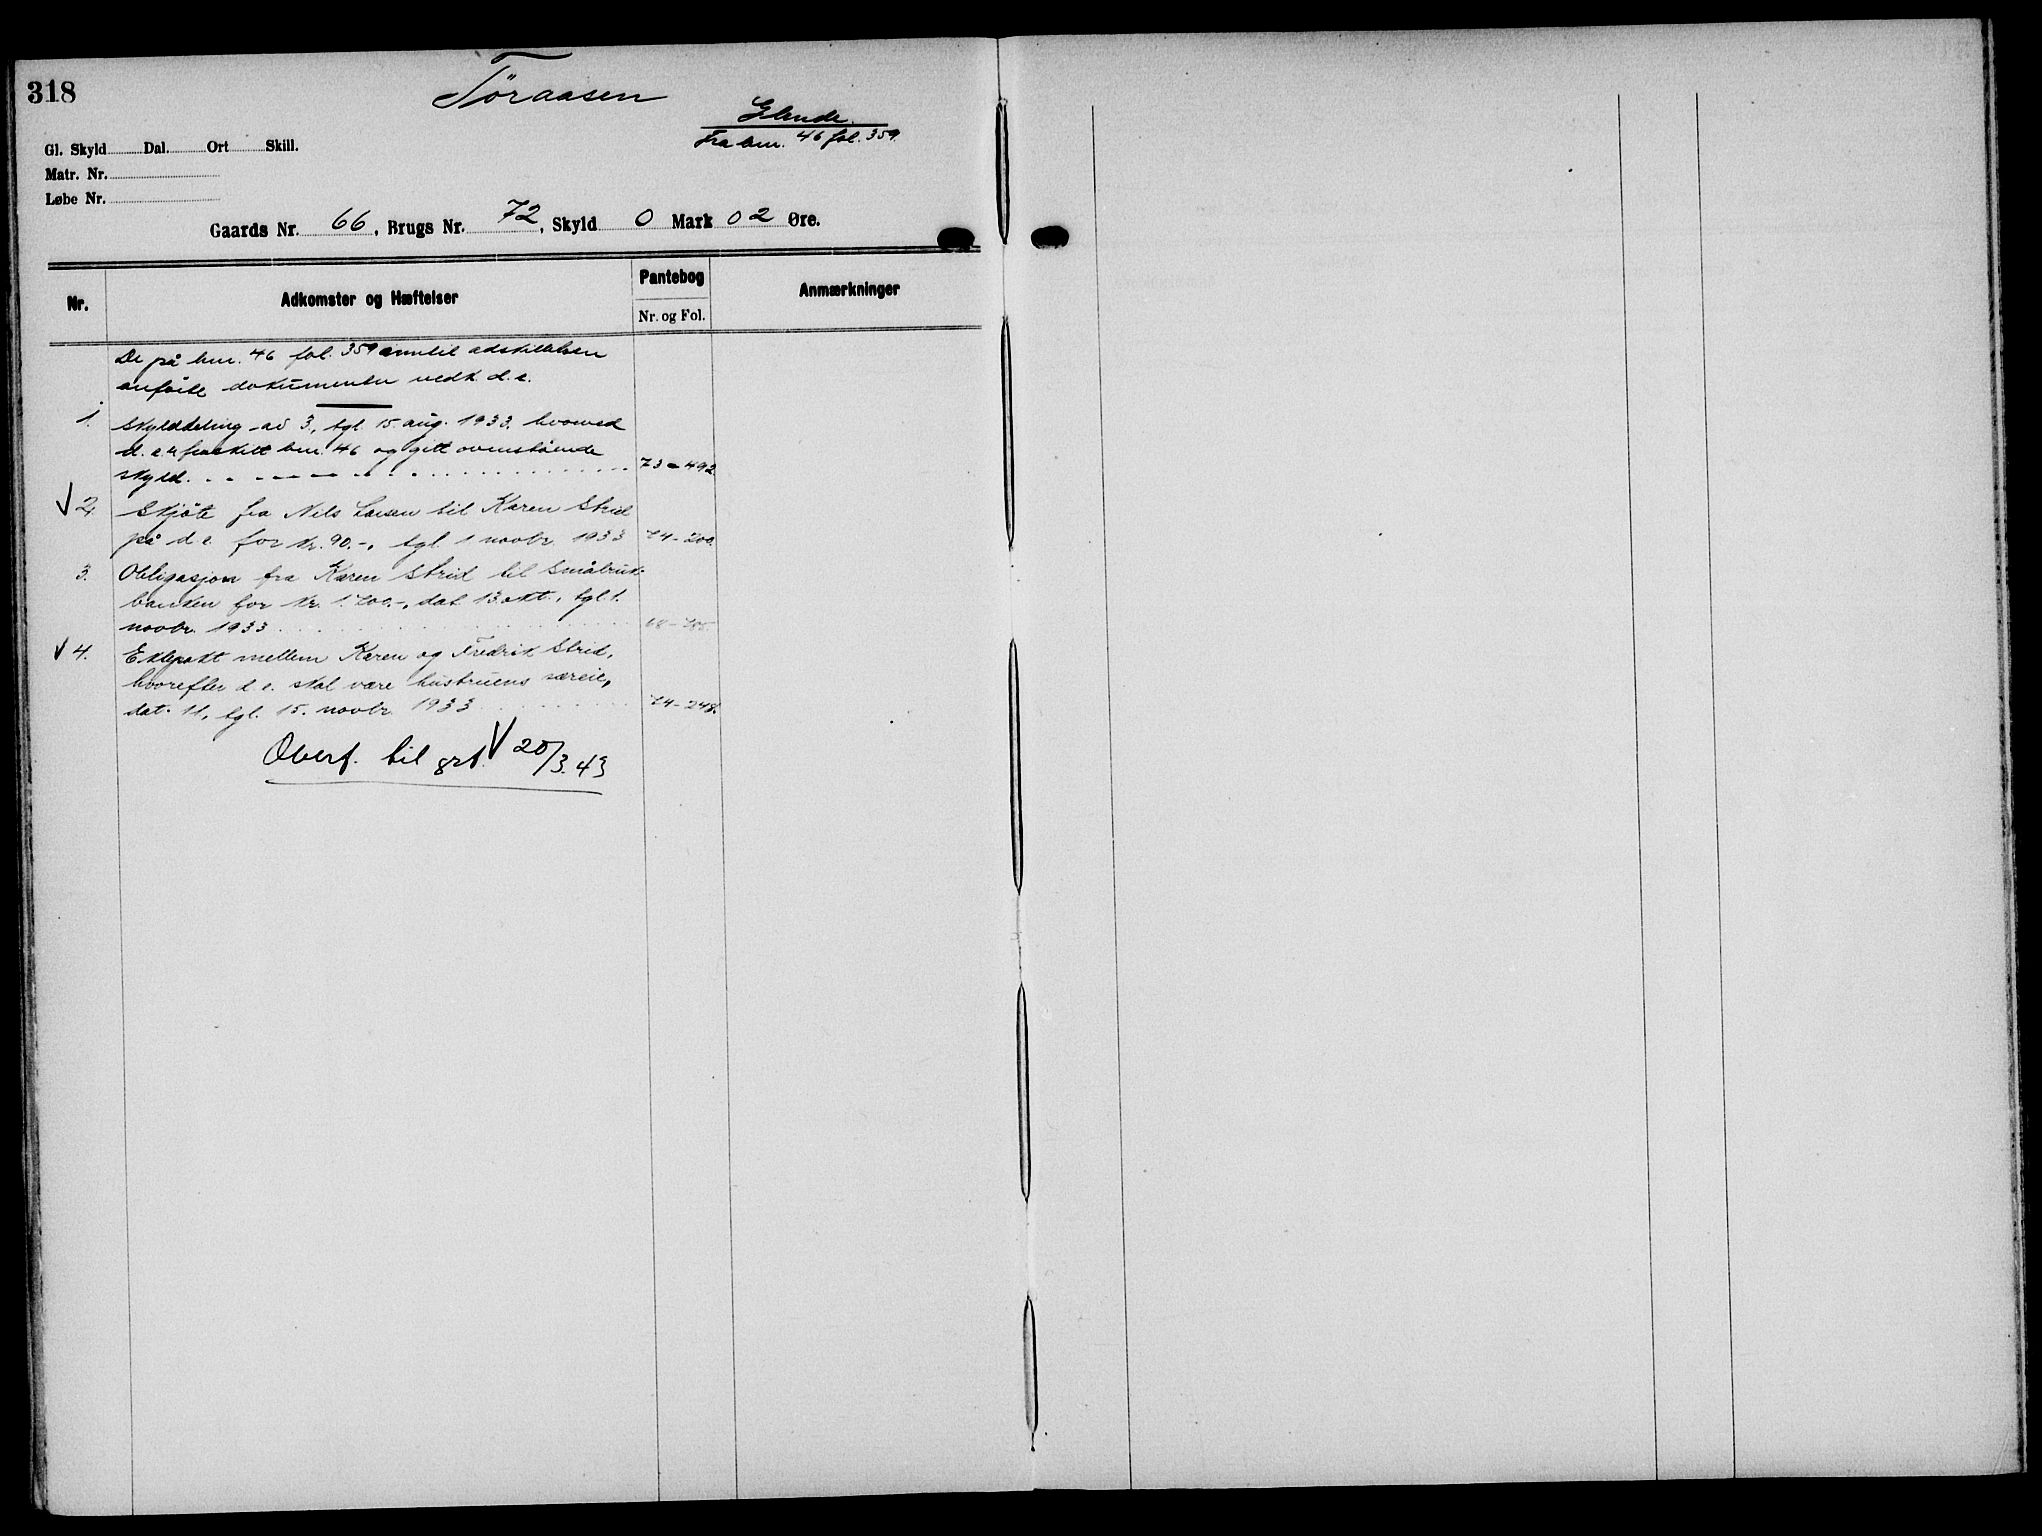 318
Tøraasen
Elende.
Fra bnr. 46 fol. 359.
Gl. Skyld Dal. Ort Skill.
Matr. Nr.
Løbe Nr.
Gaards Nr. 66, Brugs Nr. 72, Skyld 0 Mark 02 Øre.
Nr. Adkomster og Hæftelser Pantebog Anmærkninger
Nr. og Fol.
De på bnr. 46 fol. 359 inntil adskillelsen
anførte dokumenter vedk. d. e.
1. Skylddeling av 3., tgl. 15 aug. 1933, hvorved
d. e. er fraskilt bnr. 46 og gitt ovenstående
skyld. 73-492
V 2. Skjøte fra Nils Larsen til Karen Strid
på d. e. for kr. 90.-, tgl. 1 novbr. 1933 74-200.
3. Obligasjon fra Karen Strid til Småbruk-
banken for kr. 1.400.-, dat. 13 okt., tgl. 1.
novbr. 1933
V 4. Ektepakt mellem Karen og Fredrik Strid,
hvorefter d. e. skal være hustruens særeie,
dat. 11, tgl. 15. novbr. 1933 74-248.
Overf. til grb. V 20/3.43